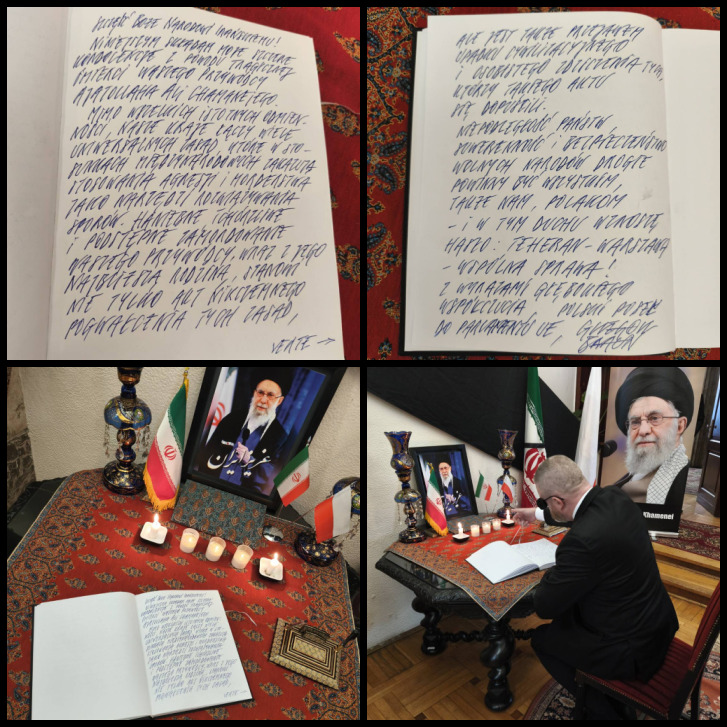 SZCZĘŚĆ BOŻE NARODOWI IRAŃSKIEMU!
NINIEJSZYM SKŁADAM MOJE SZCZERE
KONDOLENCJE Z POWODU TRAGICZNEJ
ŚMIERCI WASZEGO PRZYWÓDCY
AJATOLLAHA ALI CHAMANEJEGO.
MIMO WSZELKICH ISTOTNYCH ODMIEN-
NOŚCI, NASZE KRAJE ŁĄCZY WIELE
UNIWERSALNYCH ZASAD, KTÓRE W STO-
SUNKACH MIĘDZYNARODOWYCH ZAKAZUJĄ
STOSOWANIA AGRESJI I MORDERSTWA
JAKO NARZĘDZI ROZWIĄZYWANIA
SPORÓW. HANIEBNE, TCHÓRZLIWE
I PODSTĘPNE ZAMORDOWANIE
WASZEGO PRZYWÓDCY, WRAZ Z JEGO
NAJBLIŻSZĄ RODZINĄ, STANOWI
NIE TYLKO AKT NIKCZEMNEGO
POGWAŁCENIA TYCH ZASAD,
VERTE →
ALE JEST TAKŻE PRZEJAWEM
UPADKU CYWILIZACYJNEGO
I OSOBISTEGO ZDZICZENIA TYCH,
KTÓRZY TAKIEGO AKTU
SIĘ DOPUŚCILI.
NIEPODLEGŁOŚĆ PAŃSTW
SUWERENNOŚĆ I BEZPIECZEŃSTWO
WOLNYCH NARODÓW DROGIE
POWINNY BYĆ WSZYSTKIM,
TAKŻE NAM, POLAKOM
- I W TYM DUCHU WZNOSZĘ
HASŁO: TEHERAN - WARSZAWA
- WSPÓLNA SPRAWA!
Z WYRAZAMI GŁĘBOKIEGO
WSPÓŁCZUCIA, POLSKI POSEŁ
DO PARLAMENTU UE, GRZEGORZ
BRAUN
عزیز ایران
Khamenei